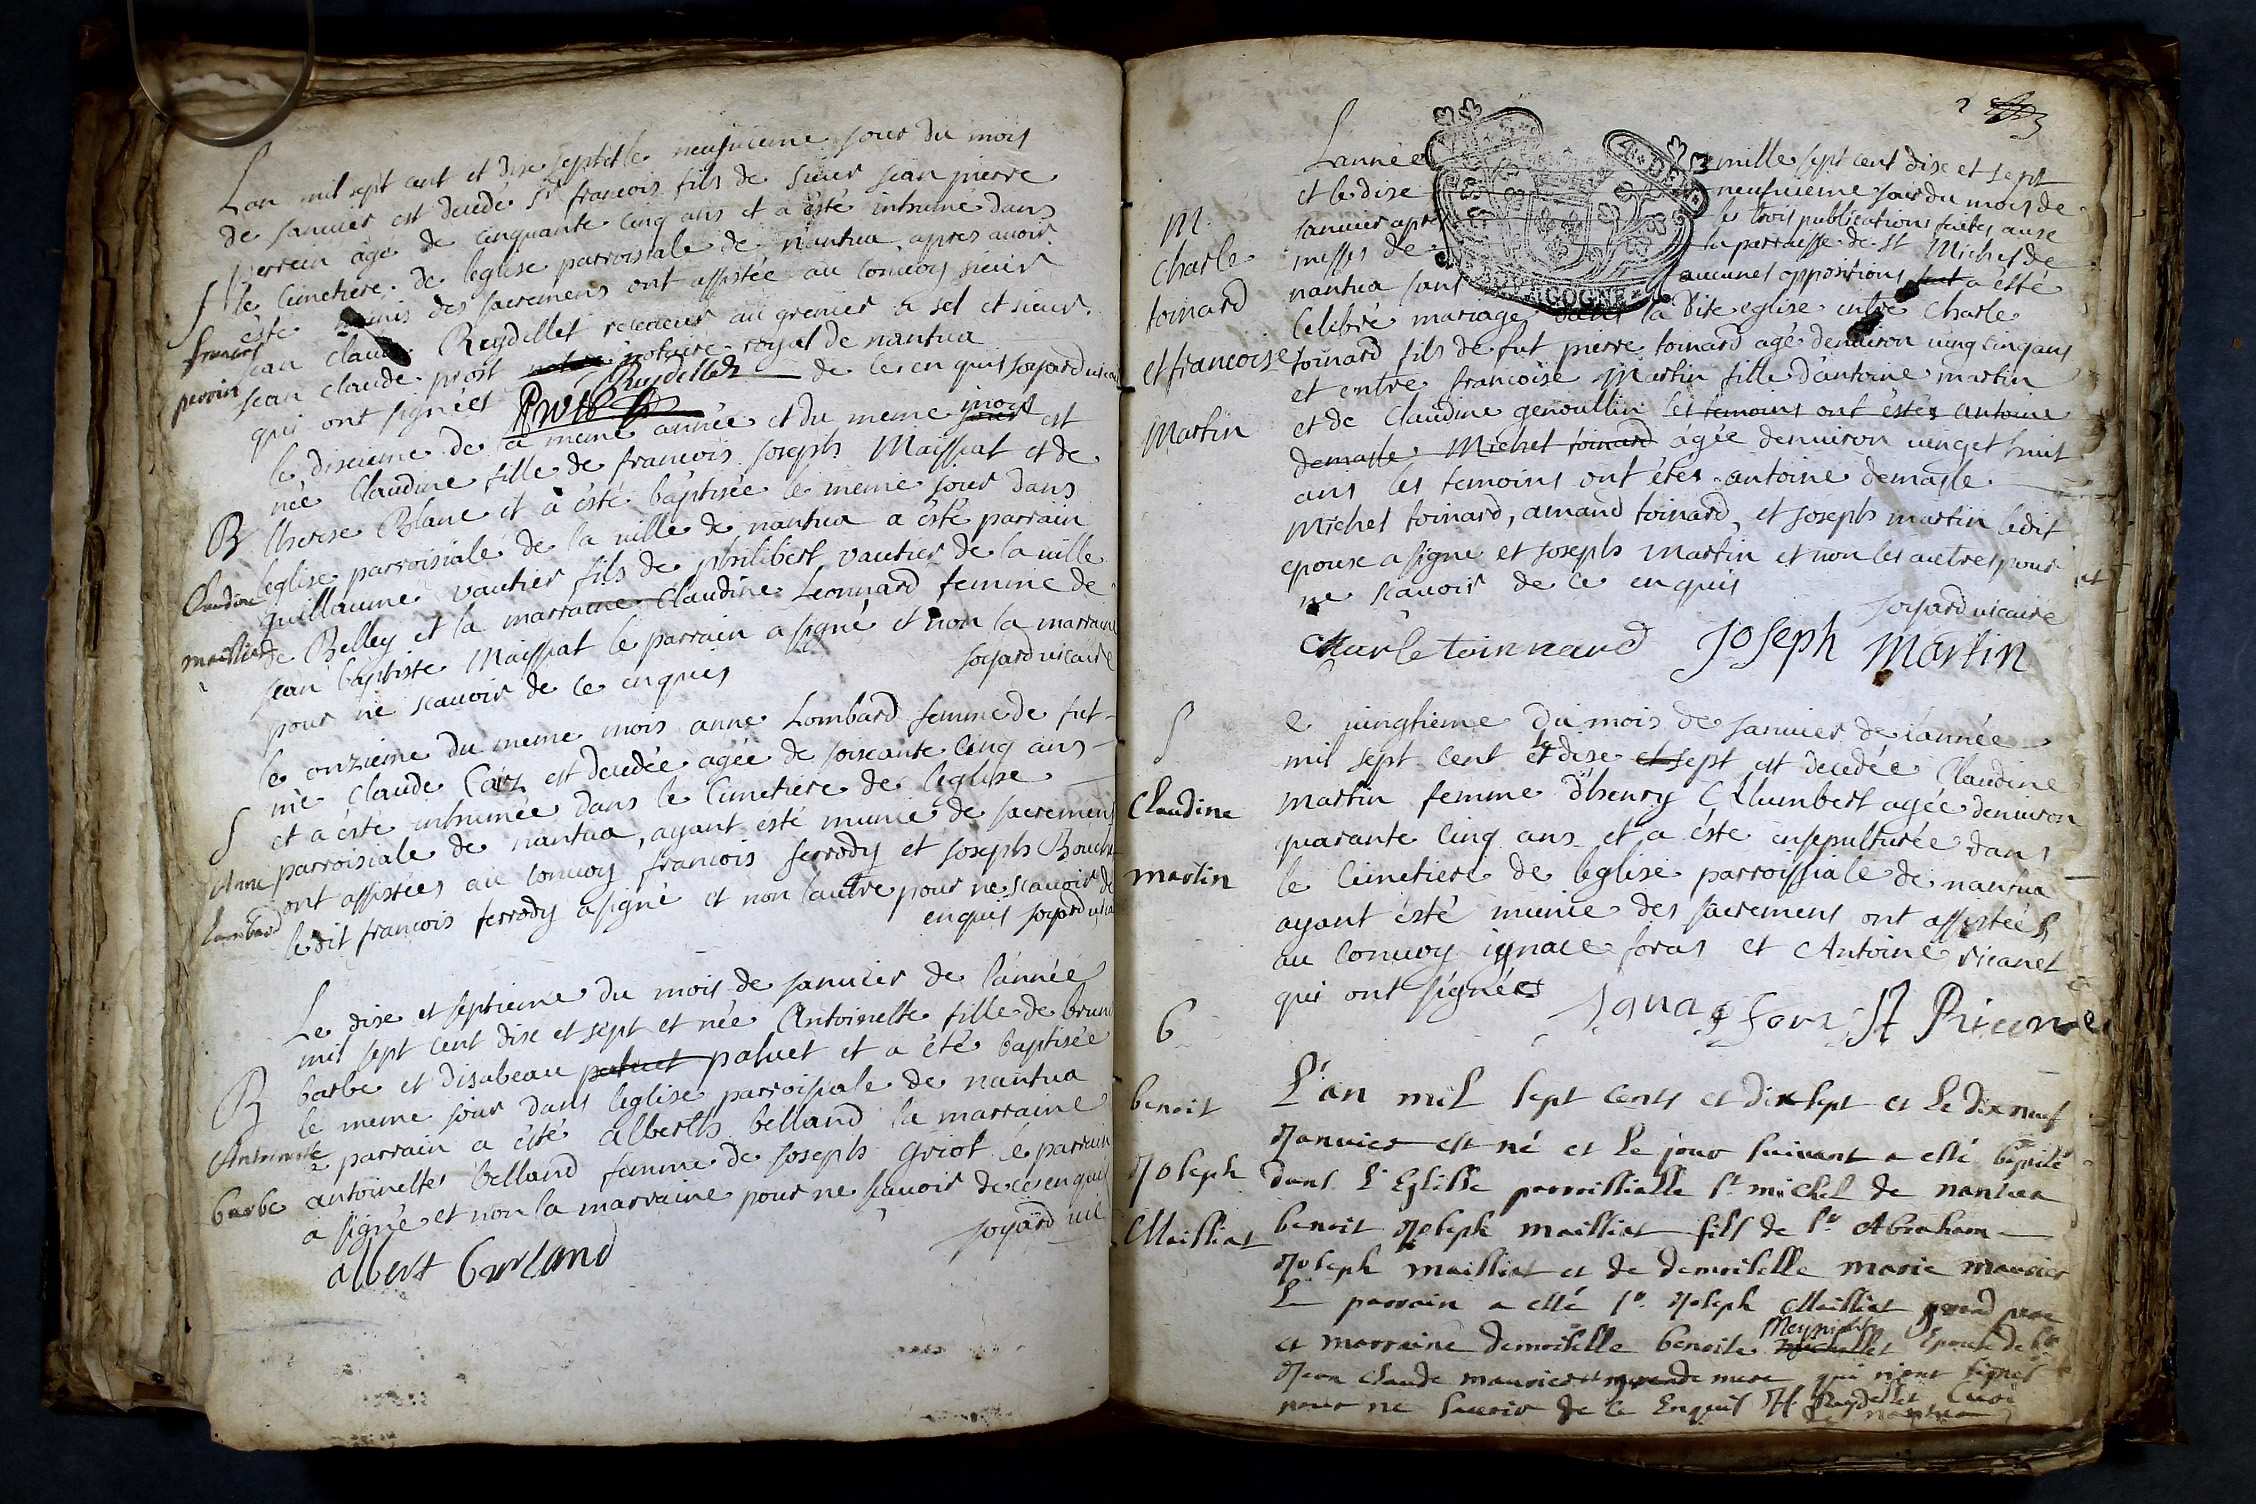 Lan mil sept cent et dise septet le neufuieme jour du mois
de januier est decedé Sr francois fils de sieur jean pierre
perrein agé de cinquante cinq ans et a esté inhumé dans
S
le cimetiere de leglise parroisiale de nantua apres auoir
este munis des sacremens ont assistée au conuoy sieur
francois
jean claude Reydellet receueur au grenier a sel et sieur
perrin
jean claude prost notaire royal de nantua
qui ont signéet Reydellet de ce enquis joyard uicai
le disieme de la meme année et du meme mois est
née Claudine fille de francois joseph Maissiat et de
B
therese Blanc et à été baptisée le meme jour dans
leglise parroisiale de la uille de nantua a ésté parrain
Claudine
guillaume vautier fils de philibert vautier de la uille
maissiat
de Belley et la marraine Claudine Leonnard femme de
jean baptiste Maissiat le parrain a signé et non la marraine
pour ne scauoir de ce enquis joyard uicaire
le onzieme du meme mois anne Lombard femme de fut
me claude est decedée agée de soiscante cinq ans
S
et a éste inhumée dans le Cimetiere de leglise
parroisiale de nantua, ayant esté munie de sacremens
Anne
ont assistées au conuoy francois ferrody et joseph
Lombard
ledit francois ferrody a signé et non lautre pour ne scauoir de
enquis joyard uica
Le dise et septieme du mois de januier de lánnée
mil sept cent dise et sept et née Antoinette fille de
barbe et disabeau paluet paluet et a été baptisée
B
le meme jour dans leglise parroissiale de nantua
Antoinette
parrain a éste alberth belland la marraine
barbe
antoinette Belland femme de joseph griot le parrain
a signé et non la marraine pour ne scauoir de ce enquis
joyard uic
albert
2
Lannée mille sept cent dise et sept
et le dise neufuieme jour du mois de
M.
januier apres les trois publications faites aux
Charle
messes de la parroisse de st Michel de
toinard
nantua sans aucunes oppositions fut a ésté
Celebré mariage dans la dite eglise entre Charle
et francoise
toinard fils de fut pierre toinard agé denuiron uing cinq ans
et entre francoise Martin fille dántoine martin
Martin
et de Claudine genoullin les temoins ont éstes antoine
demasle Michel toinard agée denuiron uinget huit
ans les temoins ont étes antoine demasle
Michel toinard, amand toinard, et joseph martin ledit
epoux a signe et joseph martin et non les autres pour
ne scauoir de ce enquis
joyard uicaire
Charle toinnard Joseph Martin
S
e uingtieme du mois de januier de lánnée
mil sept cent et dise et sept est décedée Claudine
Claudine
martin femme dhenry agée denuiron
quarante cinq ans et a éste ensepulturée dans
martin
le Cimetiere de leglise parroissiale de nantua
ayant ésté munie des sacremens ont assistées
au conuoy ignace foras et Antoine ricanet
qui ont signées
L'an mil sept cents et dix sept et le dix neuf
benoit
Januier est né et le jour suiuant a esté baptisé
Joseph
dans l'Eglisse parroissialle St michel de nantua
Maissiat
benoit Joseph maissiat fils de Sr Abraham
Joseph maissiat et de demoiselle marie maurier
Le parrain a esté Sr Joseph Maissiat grand pere
et marraine demoiselle benoite Epouse de Sr
Jean Claude maurier grande mere qui n'ont signés
pour ne scauoir de ce Enquis Reydellet Curé
de nantua